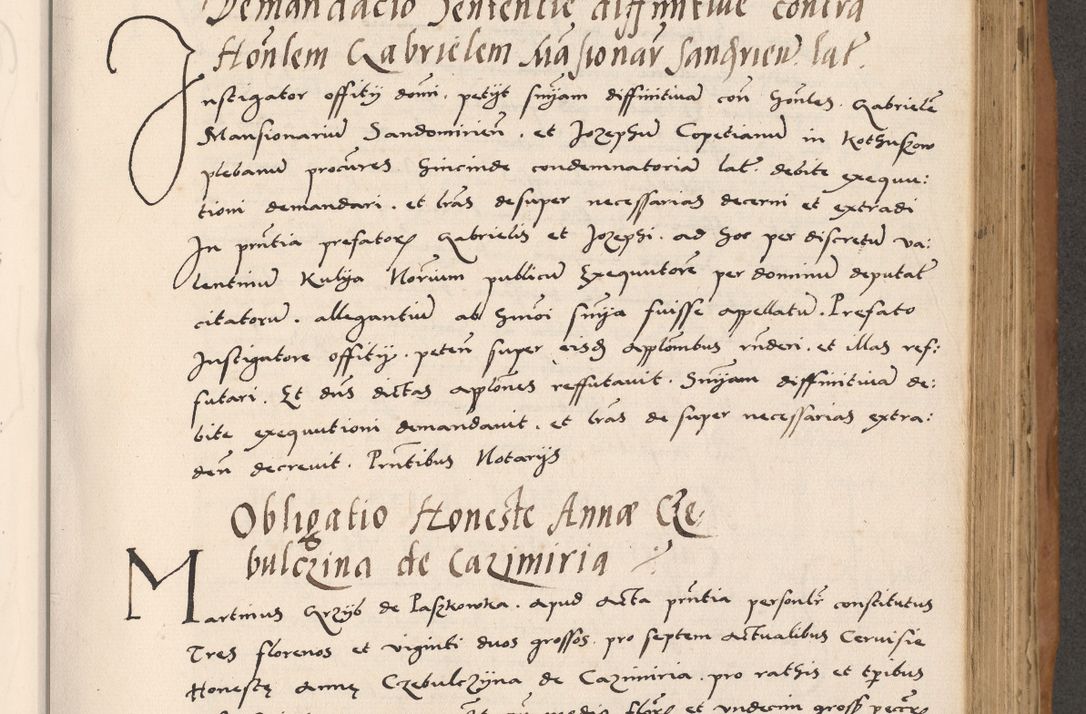 Demandacio Sententie diffinitiue contra
Honlem Gabrielem Mansionar Sandrien lat
Instigator offitij domi. petijt snyam diffinitiua con Honles. Gabriele
Mansionariu Sandomirien. et Jozephu Copetianu in Kothuszow
plebanu procures hincinde condemnatoria lat. debite exequu:
tioni demandari. et tras desuper necessarias decerni et extradi
In pntia prefator Gabrielis et Jozephi. ad hoc per discretu va:
lentinu Kulya Norium publicu Exequutore per dominu deputat
citatoru. allegantiu ab hmoi snya fuisse appellatu. Prefato
Instigatore offitij. peten super eisd applonibus rnderi. et illas ref:
futari. Et dns dictas aplones reffutauit. Snyam diffinitiua de:
bite exequutioni demandauit. et tras de super necessarias extra:
den decreuit. Pntibus Notarijs
Obligatio Honeste Annæ Cze
bulczina de Cazimiria
Martinus Grzyb de Paszkowka. apud acta pntia personlr constitutus
Tres florenos et viginti duos grossos. pro septem actualibus Ceruisie
Honestę Annę Czebulczyna de Cazimiria. pro rathis et tpibus
media flor et vndecim gross